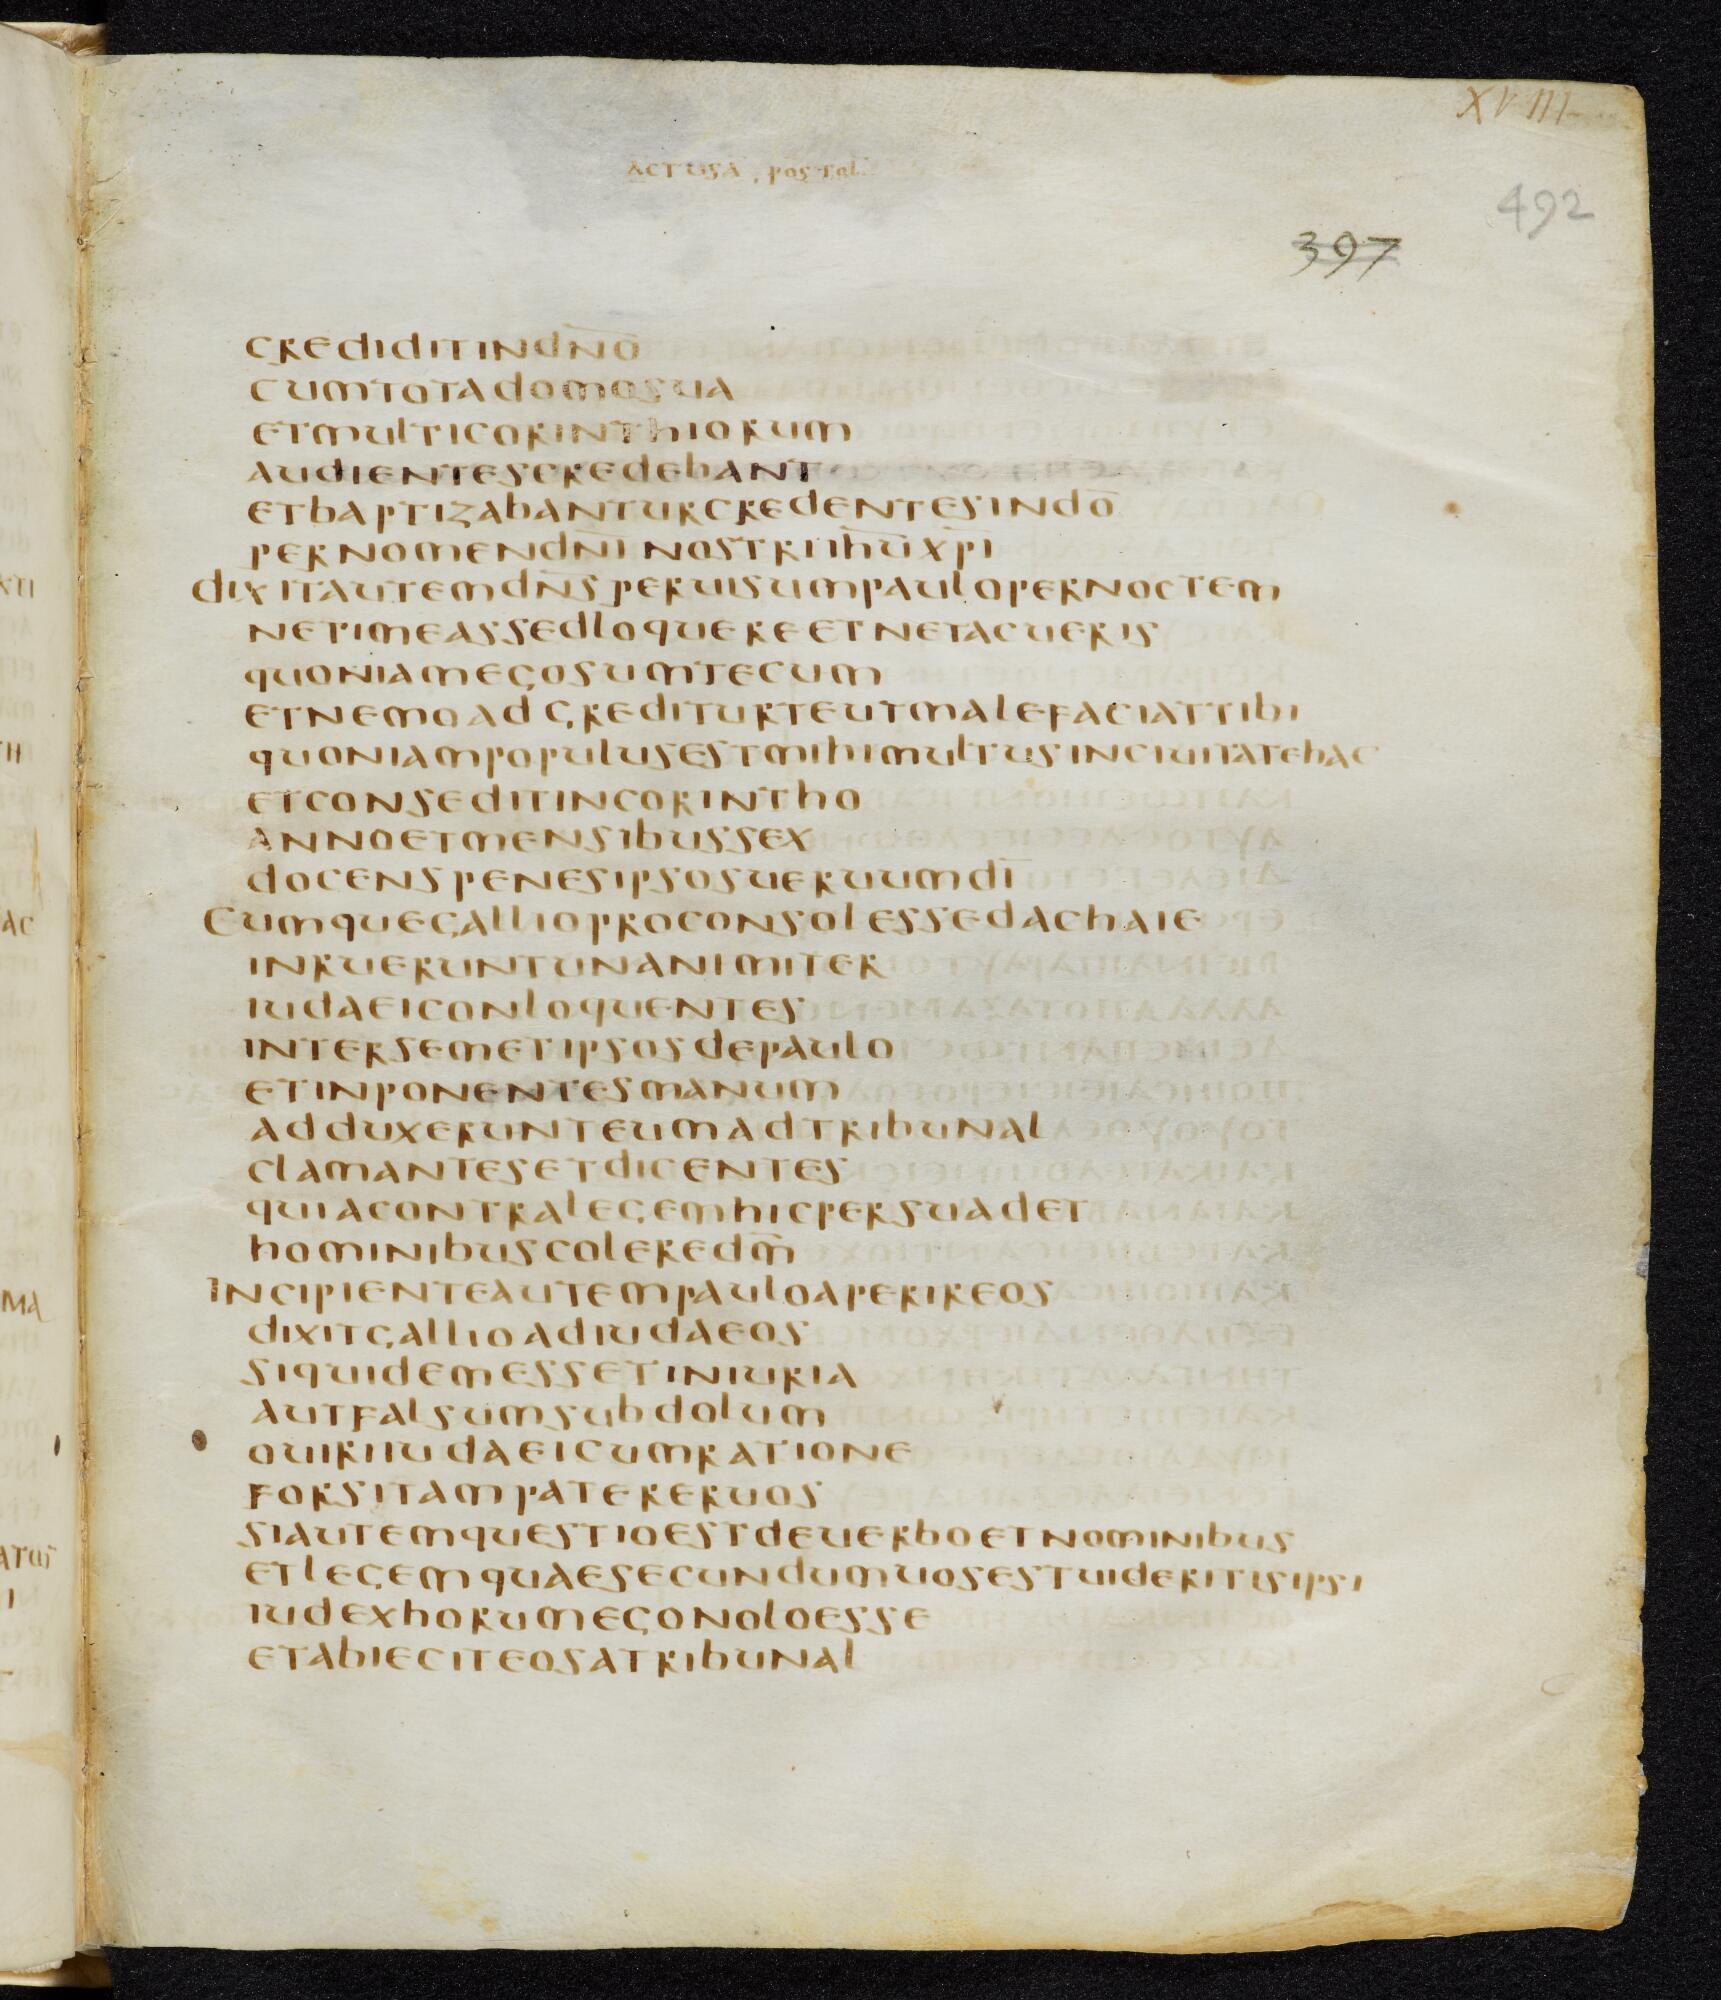 XVIII
ACTUS APOSTOL
492
397
CREDIDITINDN̄O
CUMTOTADOMOSUA
ETMULTICORINTHIORUM
AUDIENTESCREDEBANT
ETBAPTIZABANTURCREDENTESINDŌ
PERNOMENDN̄INOSTRIIHŪXP̄I
DIXITAUTEMDN̄SPERUISUMPAULOPERNOCTEM
NETIMEASSEDLOQUEREETNETACUERIS
QUONIAMEGOSUMTECUM
ETNEMOADGREDITURTEUTMALEFACIATTIBI
QUONIAMPOPULUSESTMIHIMULTUSINCIUITATEHAC
ETCONSEDITINCORINTHO
ANNOETMENSIBUSSEX
DOCENSPENESIPSOSUERUUMDĪ
CUMQUEGALLIOPROCONSOLESSEDACHAIE
INRUERUNTUNANIMITER
IUDAEICONLOQUENTES
INTERSEMETIPSOSDEPAULO
ETINPONENTESMANUM
ADDUXERUNTEUMADTRIBUNAL
CLAMANTESETDICENTES
QUIACONTRALEGEMHICPERSUADET
HOMINIBUSCOLEREDM̄
INCIPIENTEAUTEMPAULOAPERIREOS
DIXITGALLIOADIUDAEOS
SIQUIDEMESSETINIURIA
AUTFALSUMSUBDOLUM
OUIRIIUDAEICUMRATIONE
FORSITAMPATERERUOS
SIAUTEMQUESTIOESTDEUERBOETNOMINIBUS
ETLEGEMQUAESECUNDUMUOSESTUIDERITISIPSI
IUDEXHORUMEGONOLOESSE
ETABIECITEOSATRIBUNAL